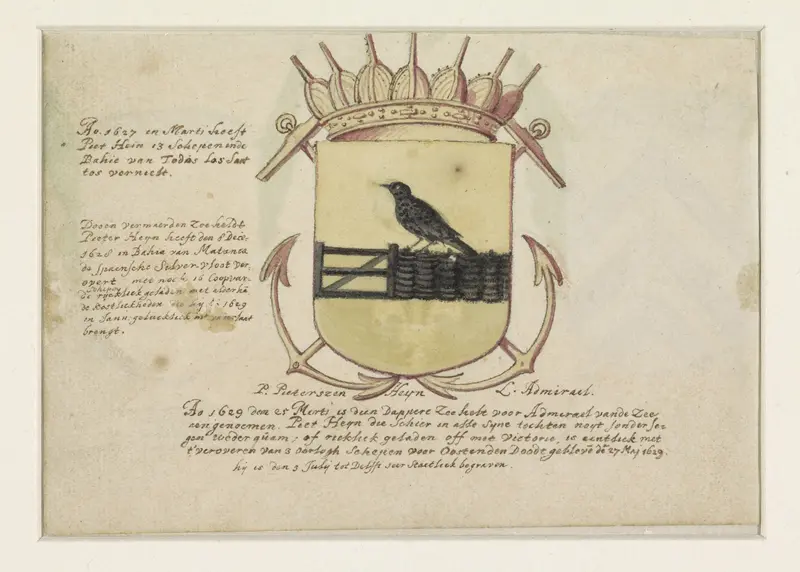 Ao. 1627 en Marti heeft
Piet Hein 13 Schepen inde
Bahie van Todos Los San
tos vernielt.
Deeen vermaerden Zee heldt
Pieter Heyn heeft den 8 Dece:
1628 in Bahia van Matanca
de Spaensche Silver-vloot ver,
overt met noch 16 Coopvar:
Schepen
de rijckelick geladen met alderhã
de kostlickheden die hij 1629
en Janu: geluckelick int vaderlant
brengt.
P. Pieterszen Heyn L. Admirael.
Ao 1629 den 25 Merti is dien Dappere Zee helt voor Admirael vande Zee
aengenomen. Piet Heyn die Schier in alle syne tochten noyt sonder se,
gen weder quam, of rijcklick geladen off met Victorie, is eintlick met
t'veroveren van 3 oorlogh Schepen voor Oostenden Doodt geblevẽ dẽ 27 Maj 1629.
hij is den 3 Julij tot Delfft seer Staetlick begraven.